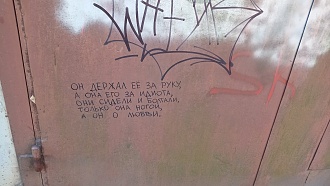 ОН ДЕРЖАЛ ЕЁ ЗА РУКУ,
А ОНА ЕГО ЗА ИДИОТА,
ОНИ СИДЕЛИ И БОЛТАЛИ,
ТОЛЬКО ОНА НОГОЙ,
А ОН О ЛЮБВИ.